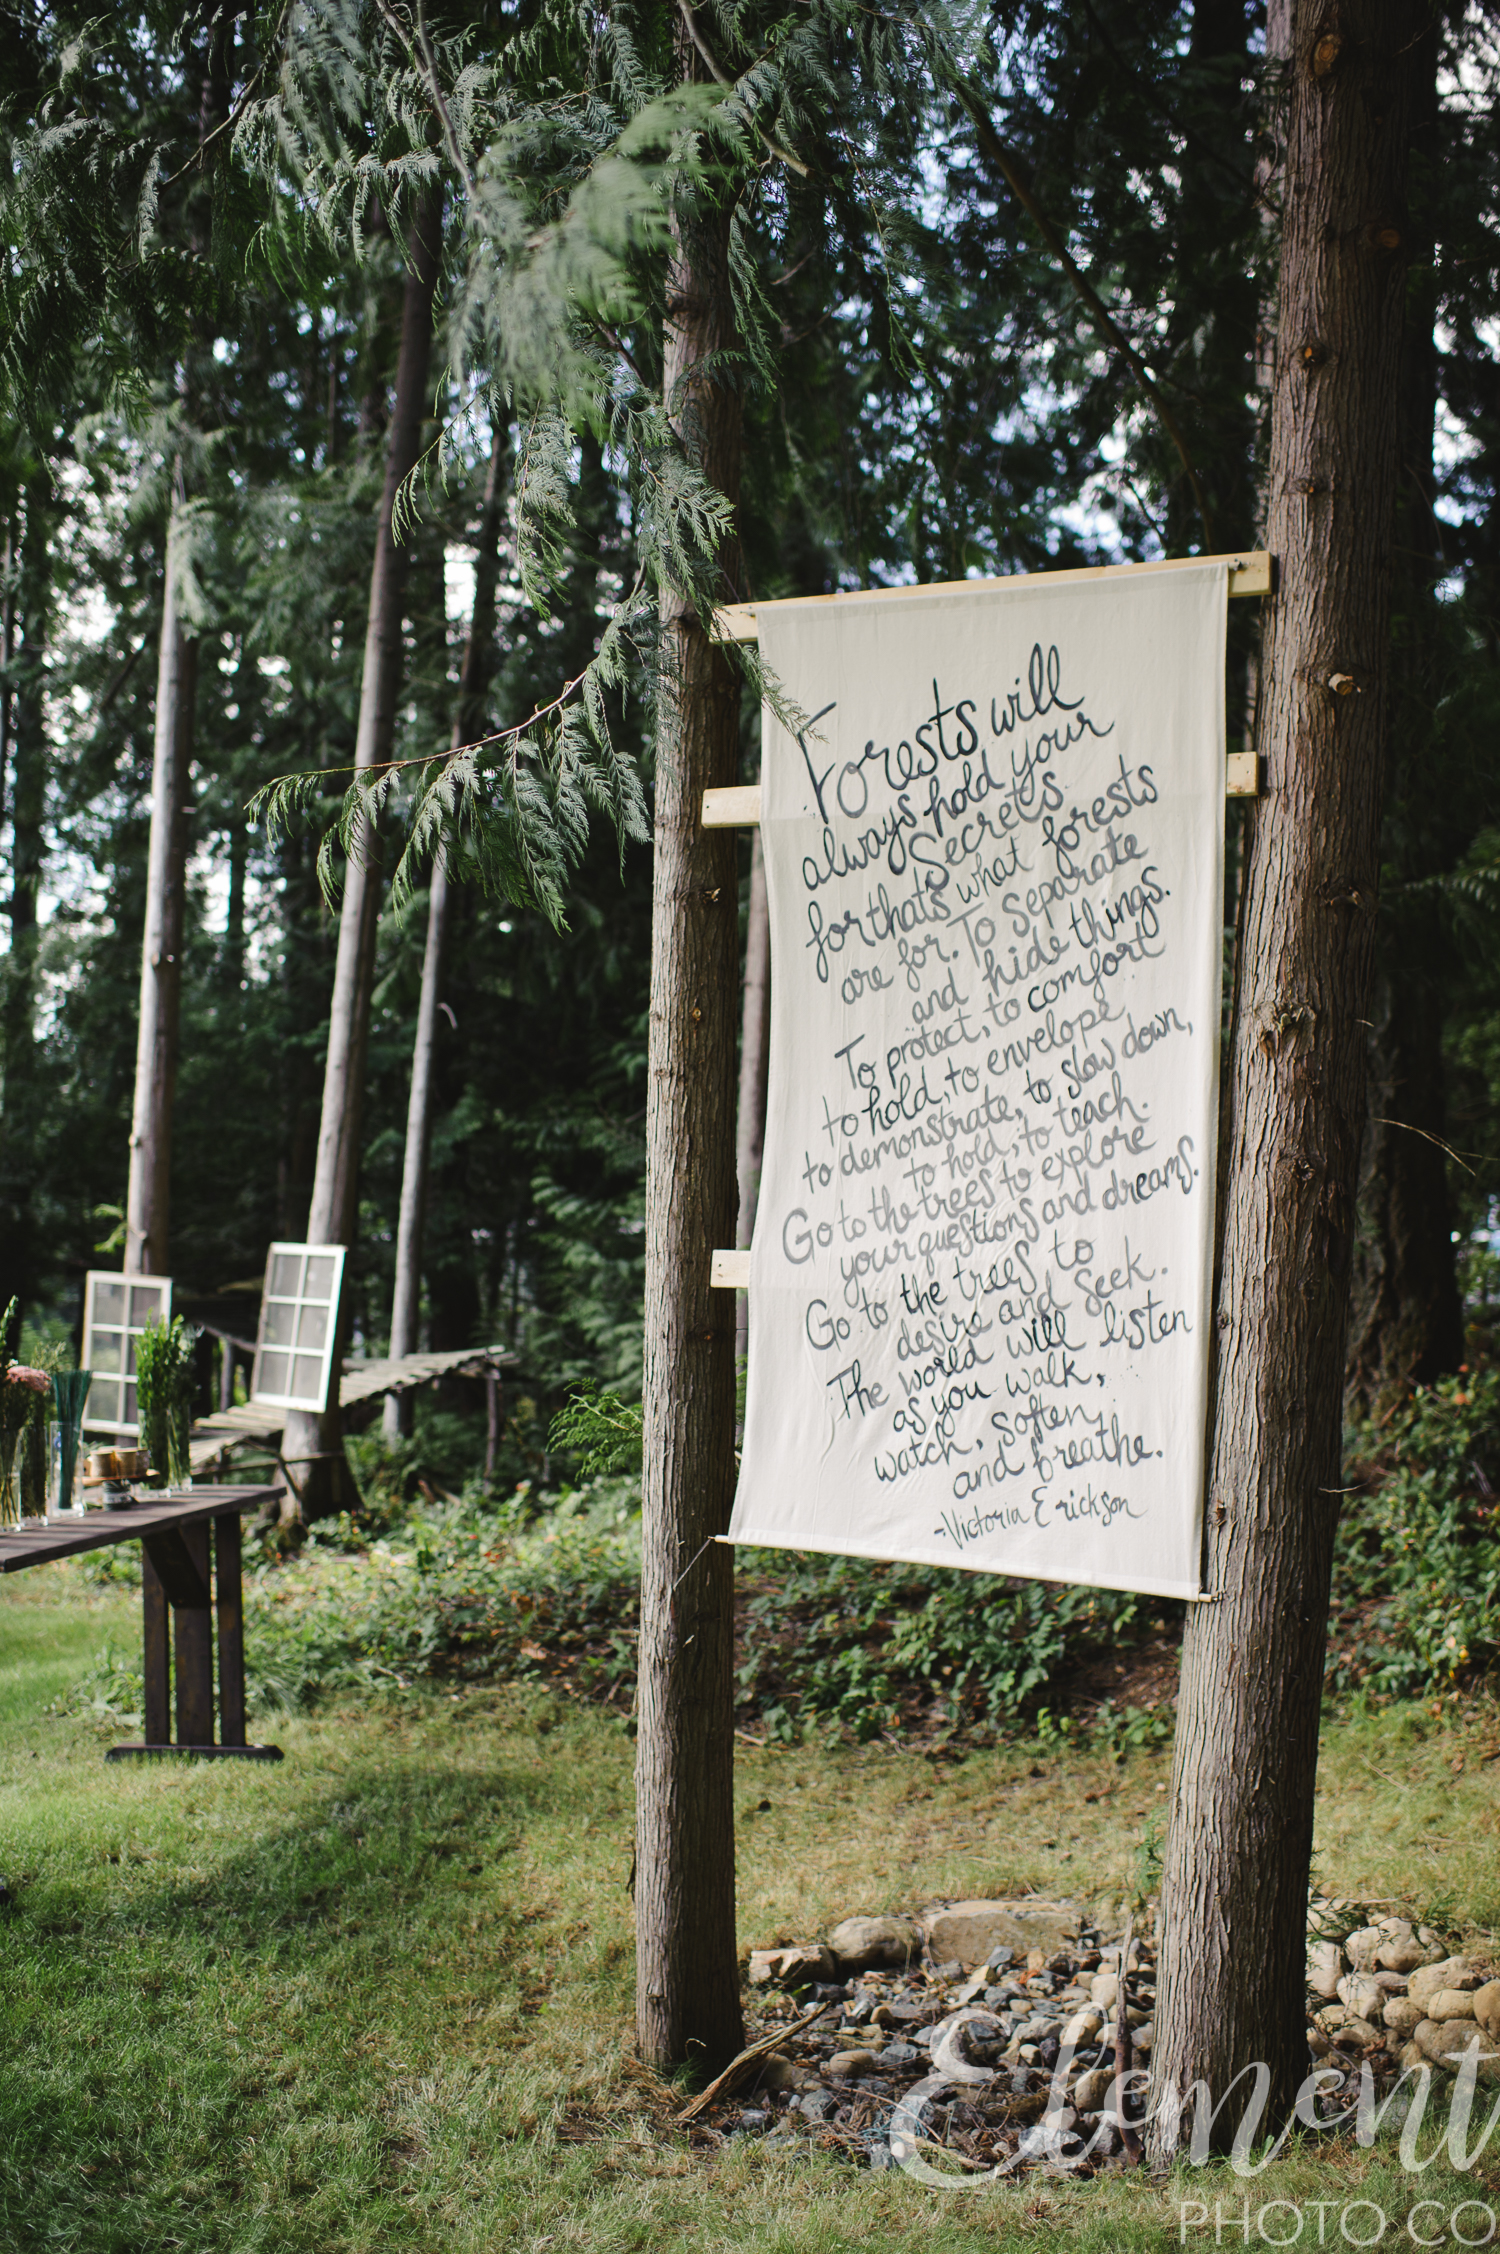 Forests will
always hold your
Secrets.
for that's what forests
are for. To Separate
and hide things.
To protect, to comfort
to hold, to envelope
to demonstrate, to slow down,
to hold, to teach.
Go to the trees to explore
your questions and dreams.
Go to the trees to
desire and Seek.
The world will listen
as you walk,
watch, soften,
and breathe.
-Victoria Erickson
Element
PHOTO CO